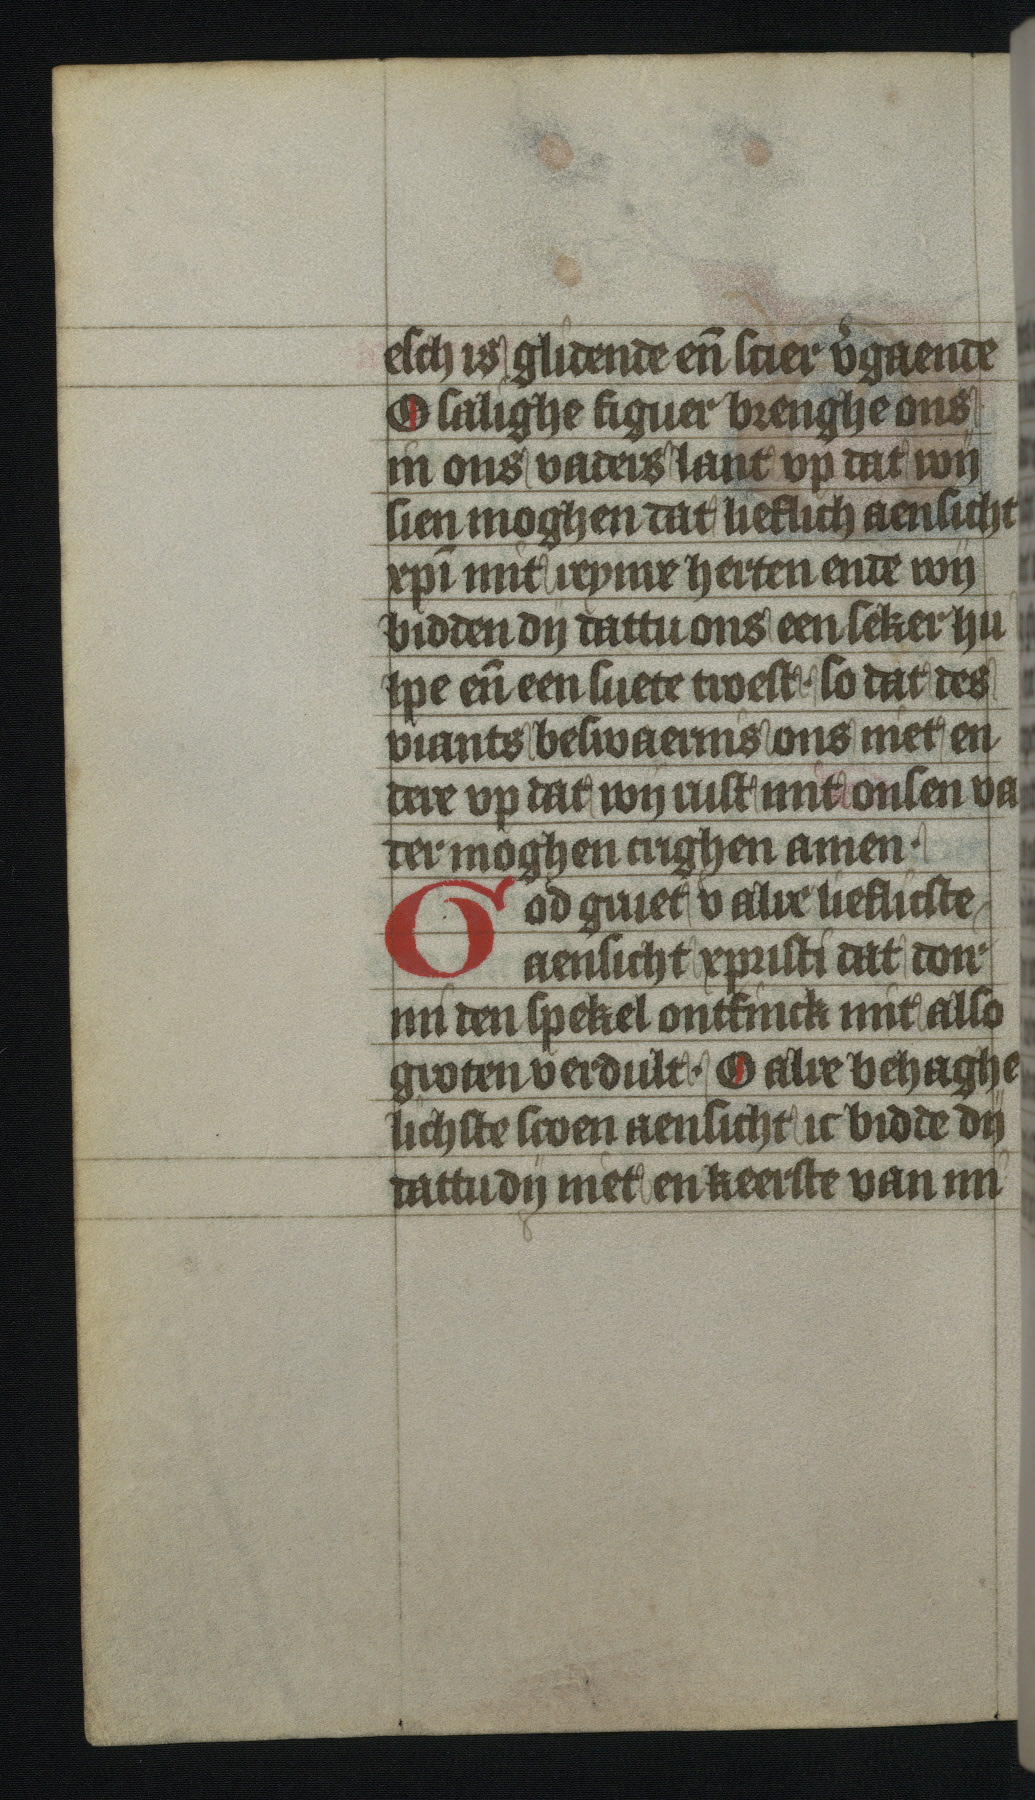 elsch is glidende en̄ scier v̾gaende
O salighe figuer brenghe ons
in ons vaders lant vp dat wij
sien moghen dat lieflich aensicht
xp̄i mit reynre herten ende wij
bidden dij dattu ons een seker hu
lpe en̄ een suete troest· so dat des
viants beswaernis ons niet en
dere vp dat wij rust mit onsen va
der moghen crighen amen·
God gruet v alre lieflicste
aensicht xpristi dat doir
mi den spekel ontfinck mit also
groten verdult· O alre behaghe
lichste scoen aensicht ic bidde dij
dattu dij niet en keerste van mi